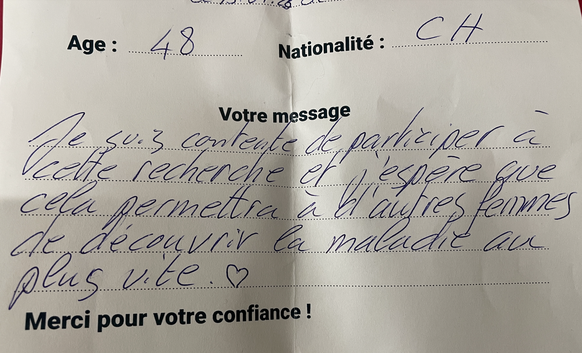 Age : 48 Nationalité : CH
Votre message
Je suis contente de participer à
cette recherche et j'espère que
cela permettra à d'autres femmes
de découvrir la maladie au
plus vite. ♡
Merci pour votre confiance !